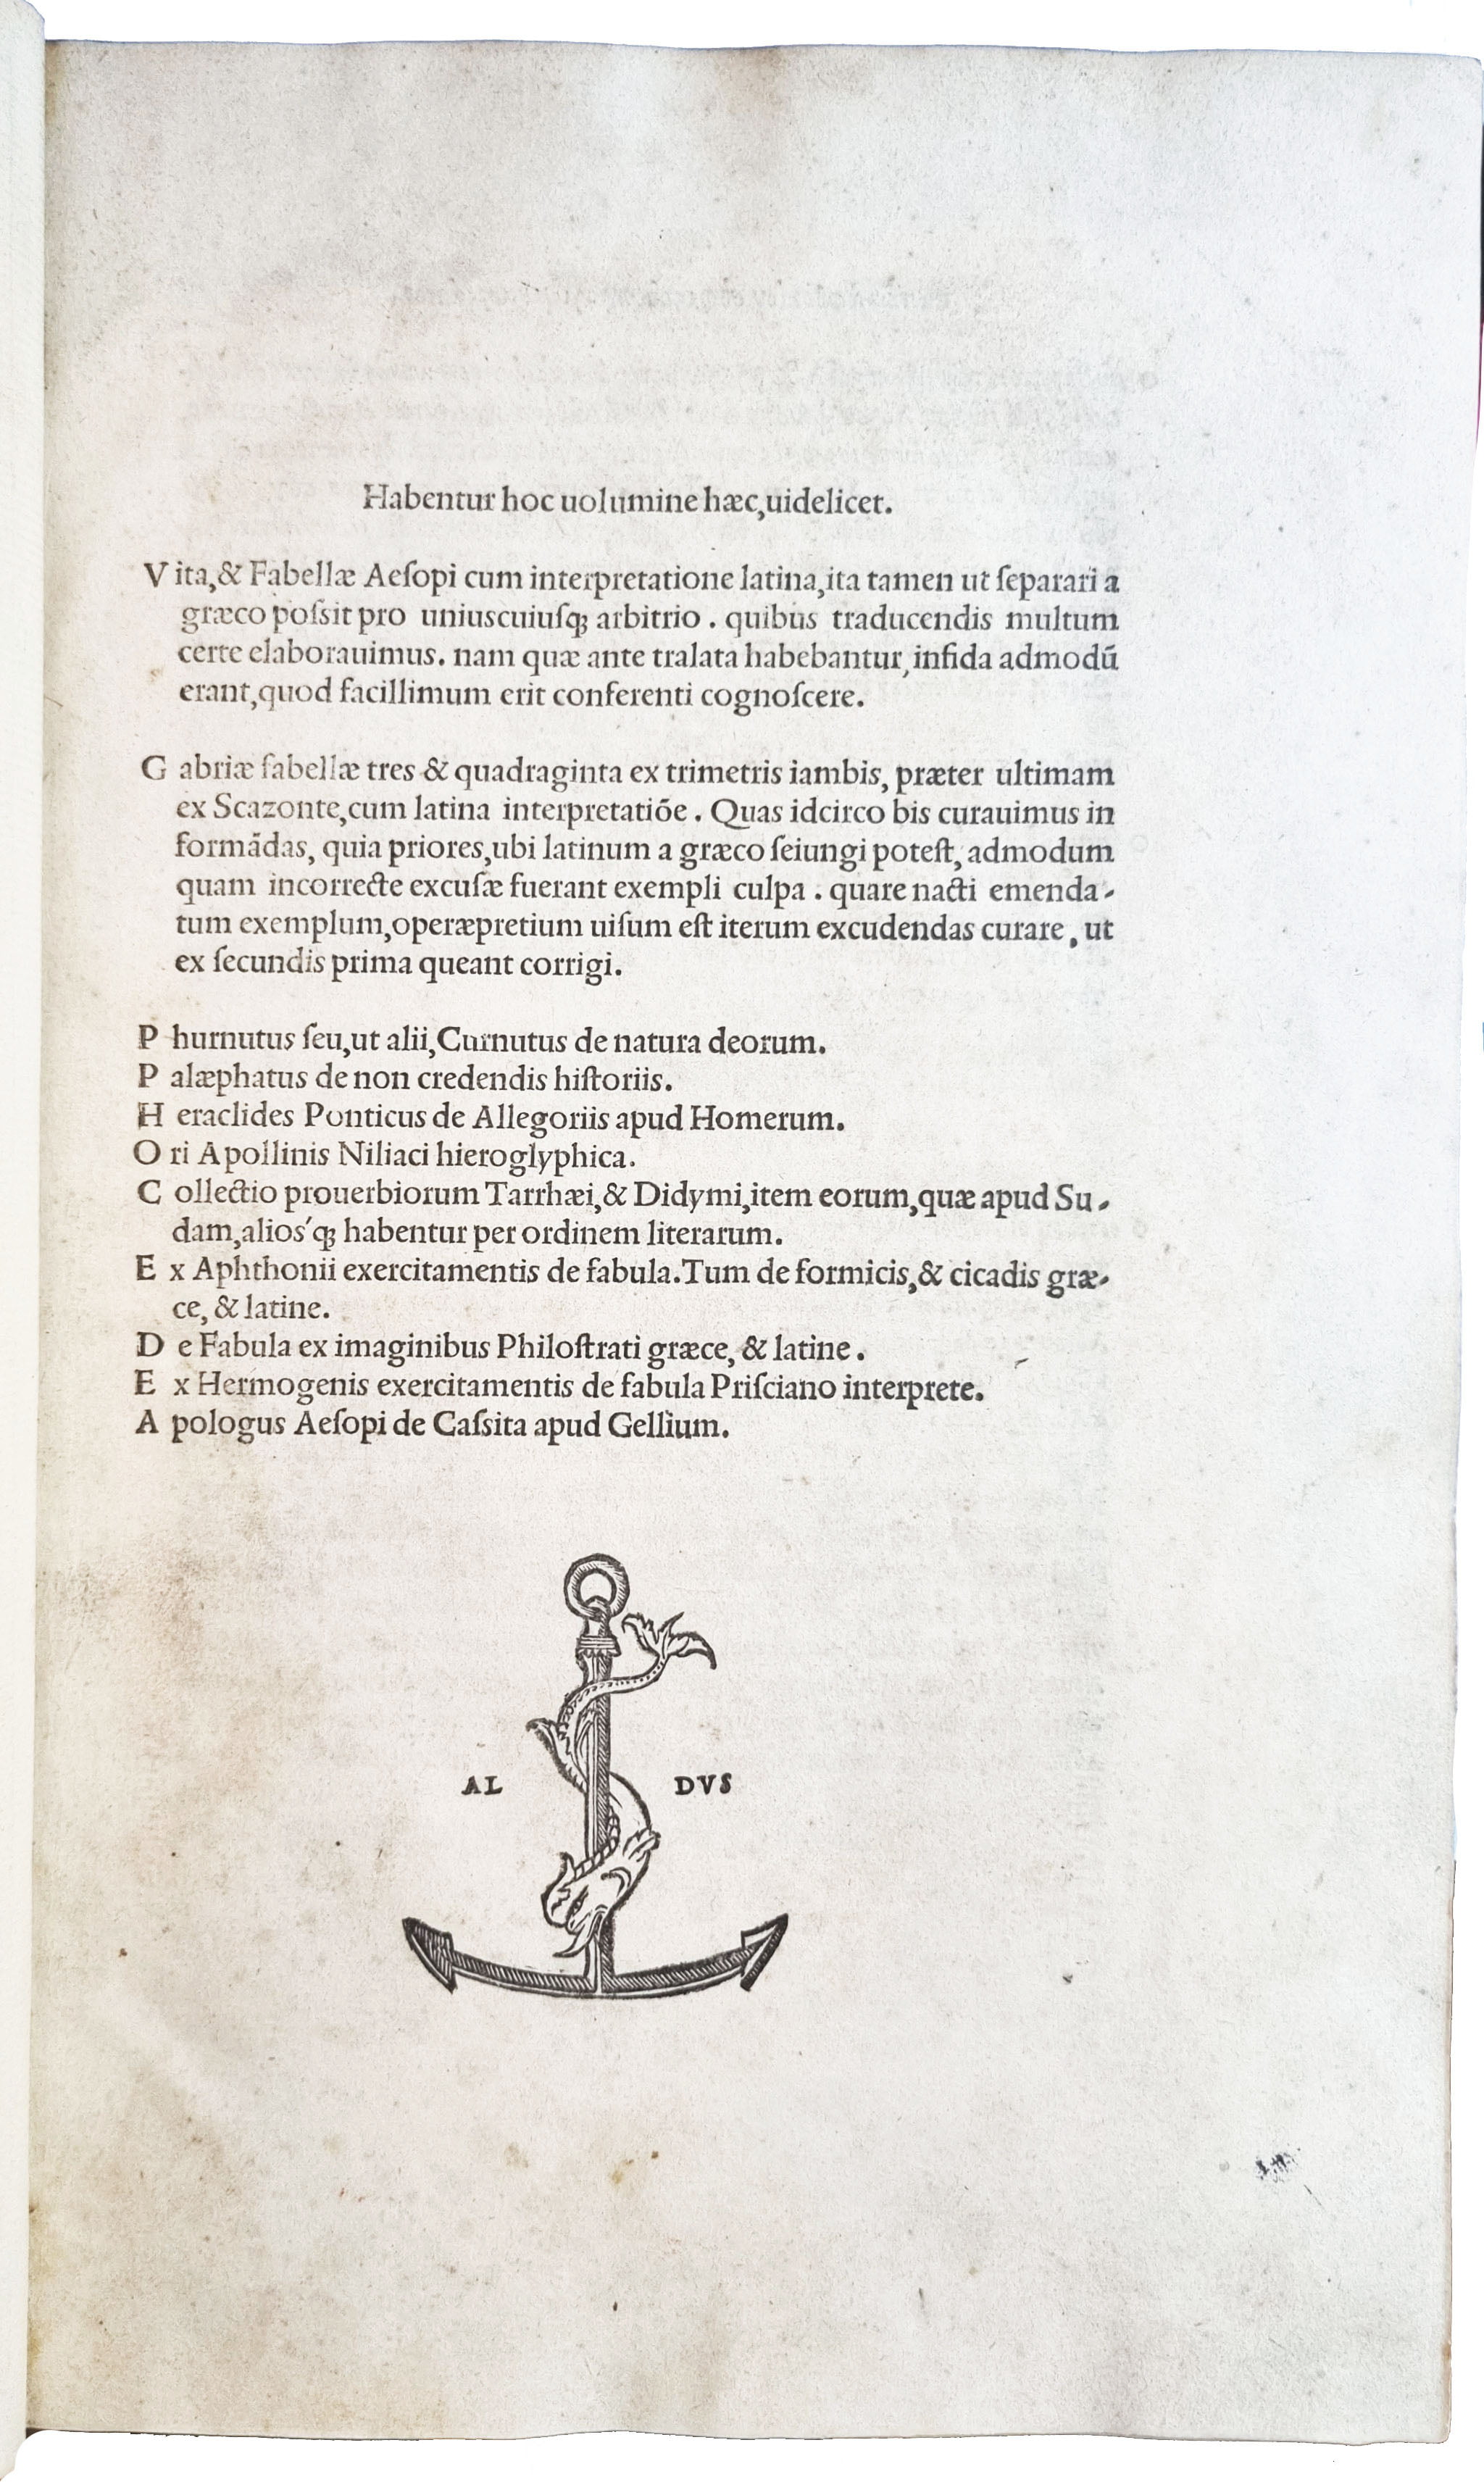 Habentur hoc uolumine hæc,uidelicet.
V ita,& Fabellæ Aeſopi cum interpretatione latina,ita tamen ut ſeparari a
græco poſsit pro uniuscuiuſq; arbitrio . quibus traducendis multum
certe elaborauimus. nam quæ ante tralata habebantur, infida admodũ
erant,quod facillimum erit conferenti cognoſcere.
G abriæ fabellæ tres & quadraginta ex trimetris iambis, præter ultimam
ex Scazonte,cum latina interpretatiõe . Quas idcirco bis curauimus in
formãdas, quia priores,ubi latinum a græco ſeiungi poteſt, admodum
quam incorrecte excuſæ fuerant exempli culpa . quare nacti emenda-
tum exemplum,operæpretium uiſum eſt iterum excudendas curare , ut
ex ſecundis prima queant corrigi.
P hurnutus ſeu,ut alii,Curnutus de natura deorum.
P alæphatus de non credendis hiſtoriis.
H eraclides Ponticus de Allegoriis apud Homerum.
O ri Apollinis Niliaci hieroglyphica.
C ollectio prouerbiorum Tarrhæi,& Didymi,item eorum,quæ apud Su-
dam,alios'q; habentur per ordinem literarum.
E x Aphthonii exercitamentis de fabula.Tum de formicis,& cicadis græ-
ce, & latine.
D e Fabula ex imaginibus Philoſtrati græce, & latine .
E x Hermogenis exercitamentis de fabula Priſciano interprete.
A pologus Aeſopi de Caſsita apud Gellium.
AL DVS